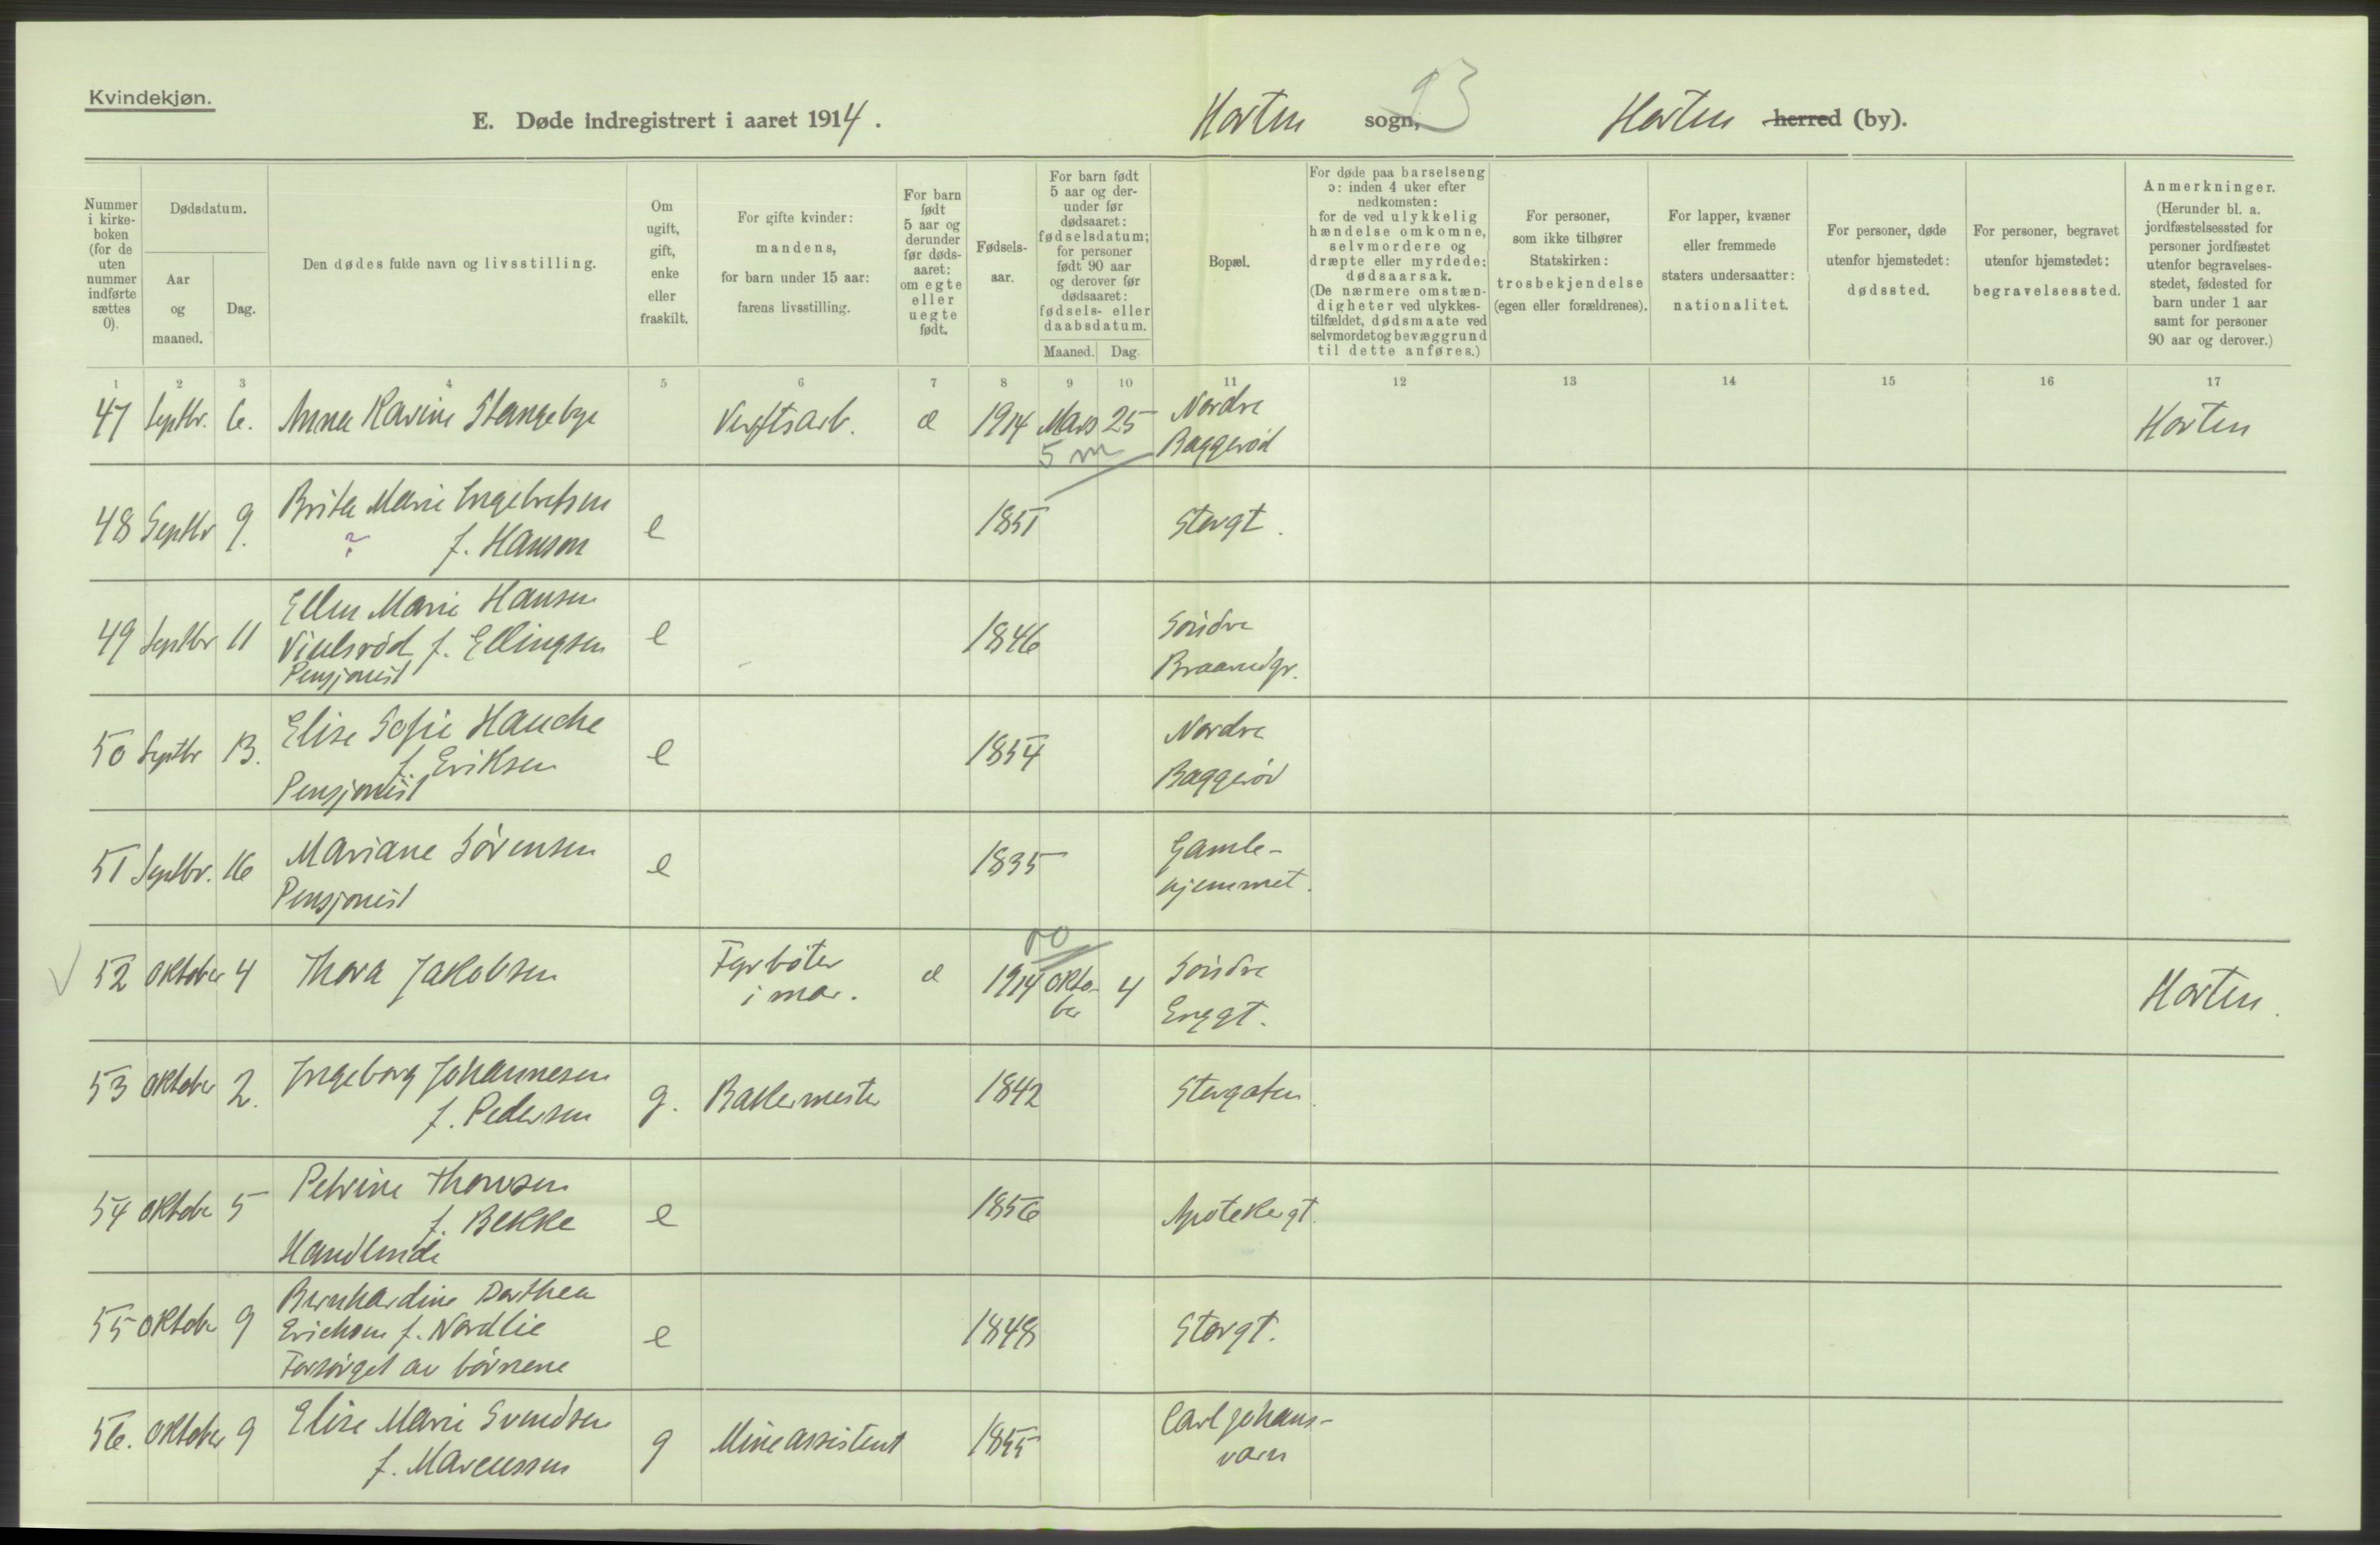 Kvindekjøn.
E. Døde indregistrert i aaret 1914. Horten sogn, 93 Horten herred (by).
Nummer i kirke-boken (for de uten nummer indførte sættes 0).
Dødsdatum.
Aar og maaned.
Dag.
Den dødes fulde navn og livsstilling.
Om ugift, gift, enke eller fraskilt.
For gifte kvinder: mandens, for barn under 15 aar: farens livsstilling.
For barn født 5 aar og derunder før døds-aaret: om egte eller uegte født.
Fødsels-aar.
For barn født 5 aar og der-under før dødsaaret: fødselsdatum; for personer født 90 aar og derover før dødsaaret: fødsels- eller daabsdatum.
Maaned. Dag.
Bopæl.
For døde paa barselseng ɔ: inden 4 uker efter nedkomsten: for de ved ulykkelig hændelse omkomne, selvmordere og dræpte eller myrdede: dødsaarsak. (De nærmere omstæn-digheter ved ulykkes-tilfældet, dødsmaate ved selvmordet og bevæggrund til dette anføres.)
For personer, som ikke tilhører Statskirken: trosbekjendelse (egen eller forældrenes).
For lapper, kvæner eller fremmede staters undersaatter: nationalitet.
For personer, døde utenfor hjemstedet: dødssted.
For personer, begravet utenfor hjemstedet: begravelsessted.
Anmerkninger. (Herunder bl. a. jordfæstelsessted for personer jordfæstet utenfor begravelses-stedet, fødested for barn under 1 aar samt for personer 90 aar og derover.)
1 2 3 4 5 6 7 8 9 10 11 12 13 14 15 16 17
47 Septbr. 6. Anna Karine Stangebye Verftsarb. æ 1914 Mars 25 Nordre Horten
5 m Baggerød
48 Septbr 9. Brita Marie Ingebretsen e 1851 Storgt.
? f. Hanson
49 Septbr 11 Ellen Marie Hansen e 1846 Søndre
f. Ellingsen Braarudgr.
Pensjonist
50 Septbr 13. Elise Sofie Hauche e 1854 Nordre
f. Eriksen Baggerød
Pensjonist
51 Septbr. 16 Mariane Sørensen e 1835 Gamle-
Pensjonist hjemmet.
52 Oktober 4 Thora Jakobsen Fyrbøter æ 1914 Okto- 4 Søndre Horten.
i mar. ber Enggt.
53 Oktober 2. Ingeborg Johannesen g. Bakermester 1842 Storgaten
f. Pedersen
54 Oktober 5 Petrine Thowsen e 1856 Apotekergt.
f. Bekke
Handlende
55 Oktober 9 Bernhardine Dorthea e 1848 Storgt.
Erichsen f. Nordlie
Forsørget av børnene
56. Oktober 9 Elise Marie Svendsen g Mineassistent 1855 Carl Johans-
f. Marcussen værn